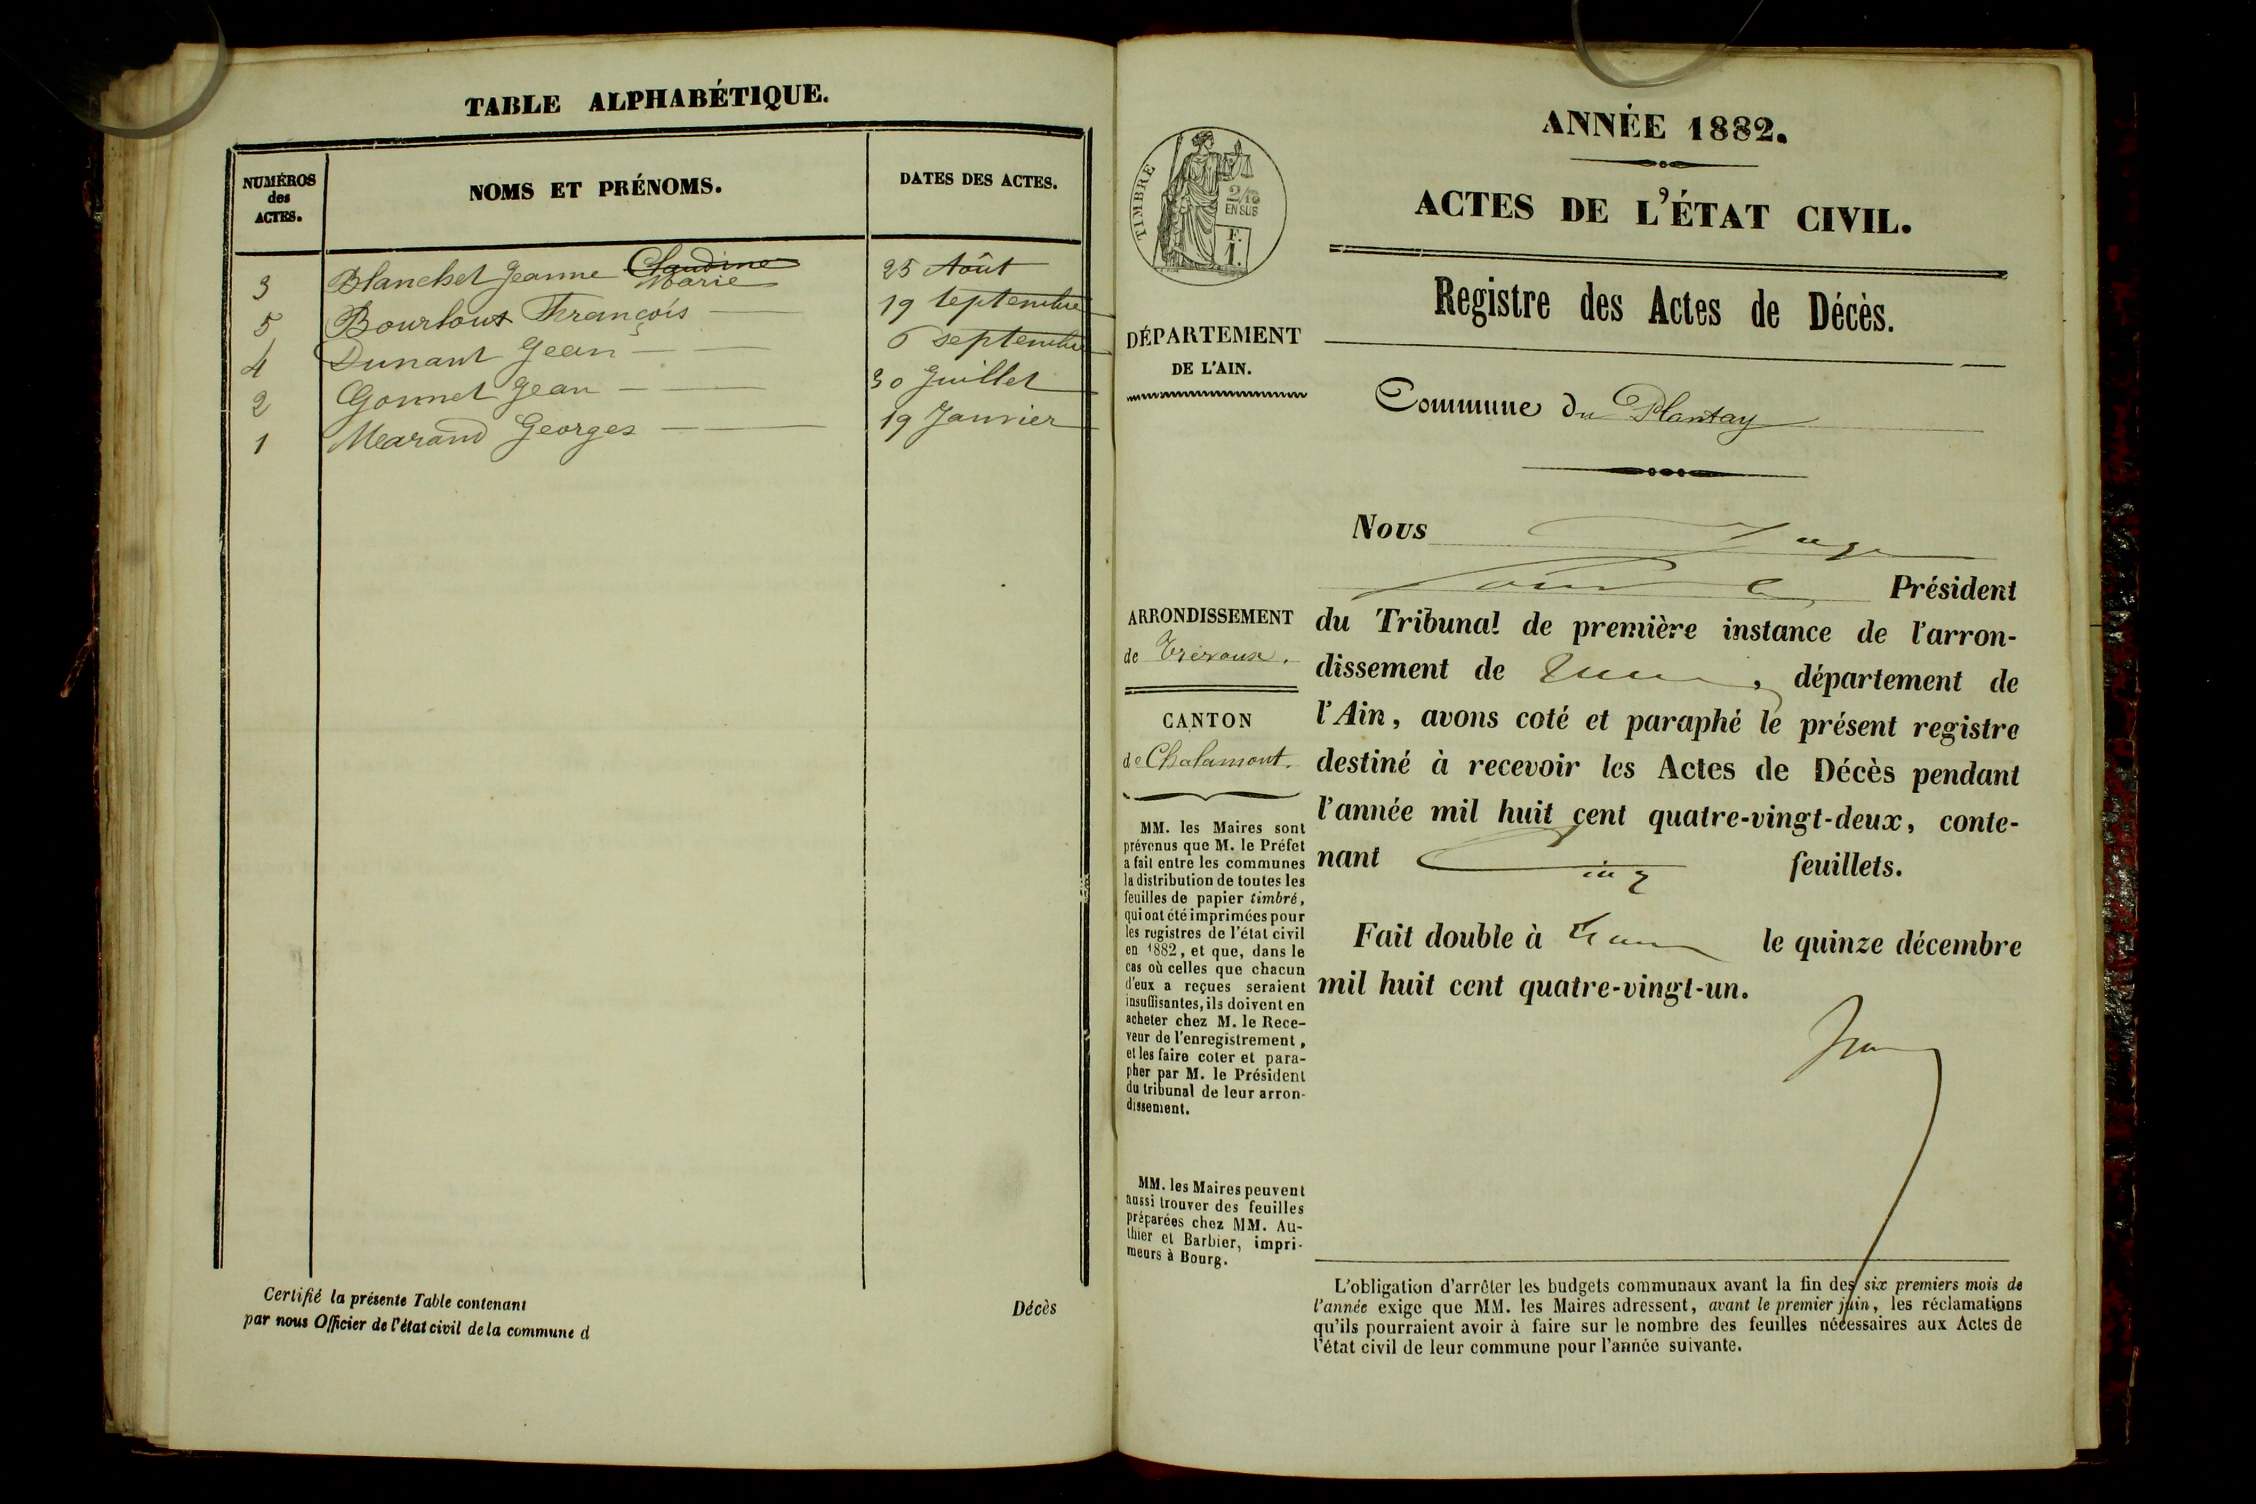 TABLE ALPHABÉTIQUE.
NUMÉROS
des
ACTES.
NOMS ET PRÉNOMS.
DATES DES ACTES.
3 Blanchet Jeanne Claudine 25 Août
Marie
5 François 19 septembre
4 Dunant Jean 6 septembre
2 Gonnet Jean 30 Juillet
1 Marand Georges 19 Janvier
Certifié la présente Table contenant Décès
par nous Officier de l'état civil de la commune d
ANNÉE 1882.
ACTES DE L'ÉTAT CIVIL.
TIMBRE
2/10
EN SUS
F.
1.
Registre des Actes de Décès.
DÉPARTEMENT
DE L'AIN.
Commune du Plantay
ARRONDISSEMENT
de Trévoux.
CANTON
de Chalamont.
MM. les Maires sont
prévenus que M. le Préfet
a fait entre les communes
la distribution de toutes les
feuilles de papier timbré,
qui ont été imprimées pour
les registres de l'état civil
en 1882, et que, dans le
cas où celles que chacun
d'eux a reçues seraient
insuffisantes, ils doivent en
acheter chez M. le Rece-
veur de l'enregistrement,
et les faire coter et para-
pher par M. le Président
du tribunal de leur arron-
dissement.
MM. les Maires peuvent
aussi trouver des feuilles
préparées chez MM. Au-
thier et Barbier, impri-
meurs à Bourg.
Nous Juge
Président
du Tribunal de première instance de l'arron-
dissement de , département de
l'Ain, avons coté et paraphé le présent registre
destiné à recevoir les Actes de Décès pendant
l'année mil huit cent quatre-vingt-deux, conte-
nant Cinq feuillets.
Fait double à le quinze décembre
mil huit cent quatre-vingt-un.
L'obligation d'arrêter les budgets communaux avant la fin des six premiers mois de
l'année exige que MM. les Maires adressent, avant le premier juin, les réclamations
qu'ils pourraient avoir à faire sur le nombre des feuilles nécessaires aux Actes de
l'état civil de leur commune pour l'année suivante.